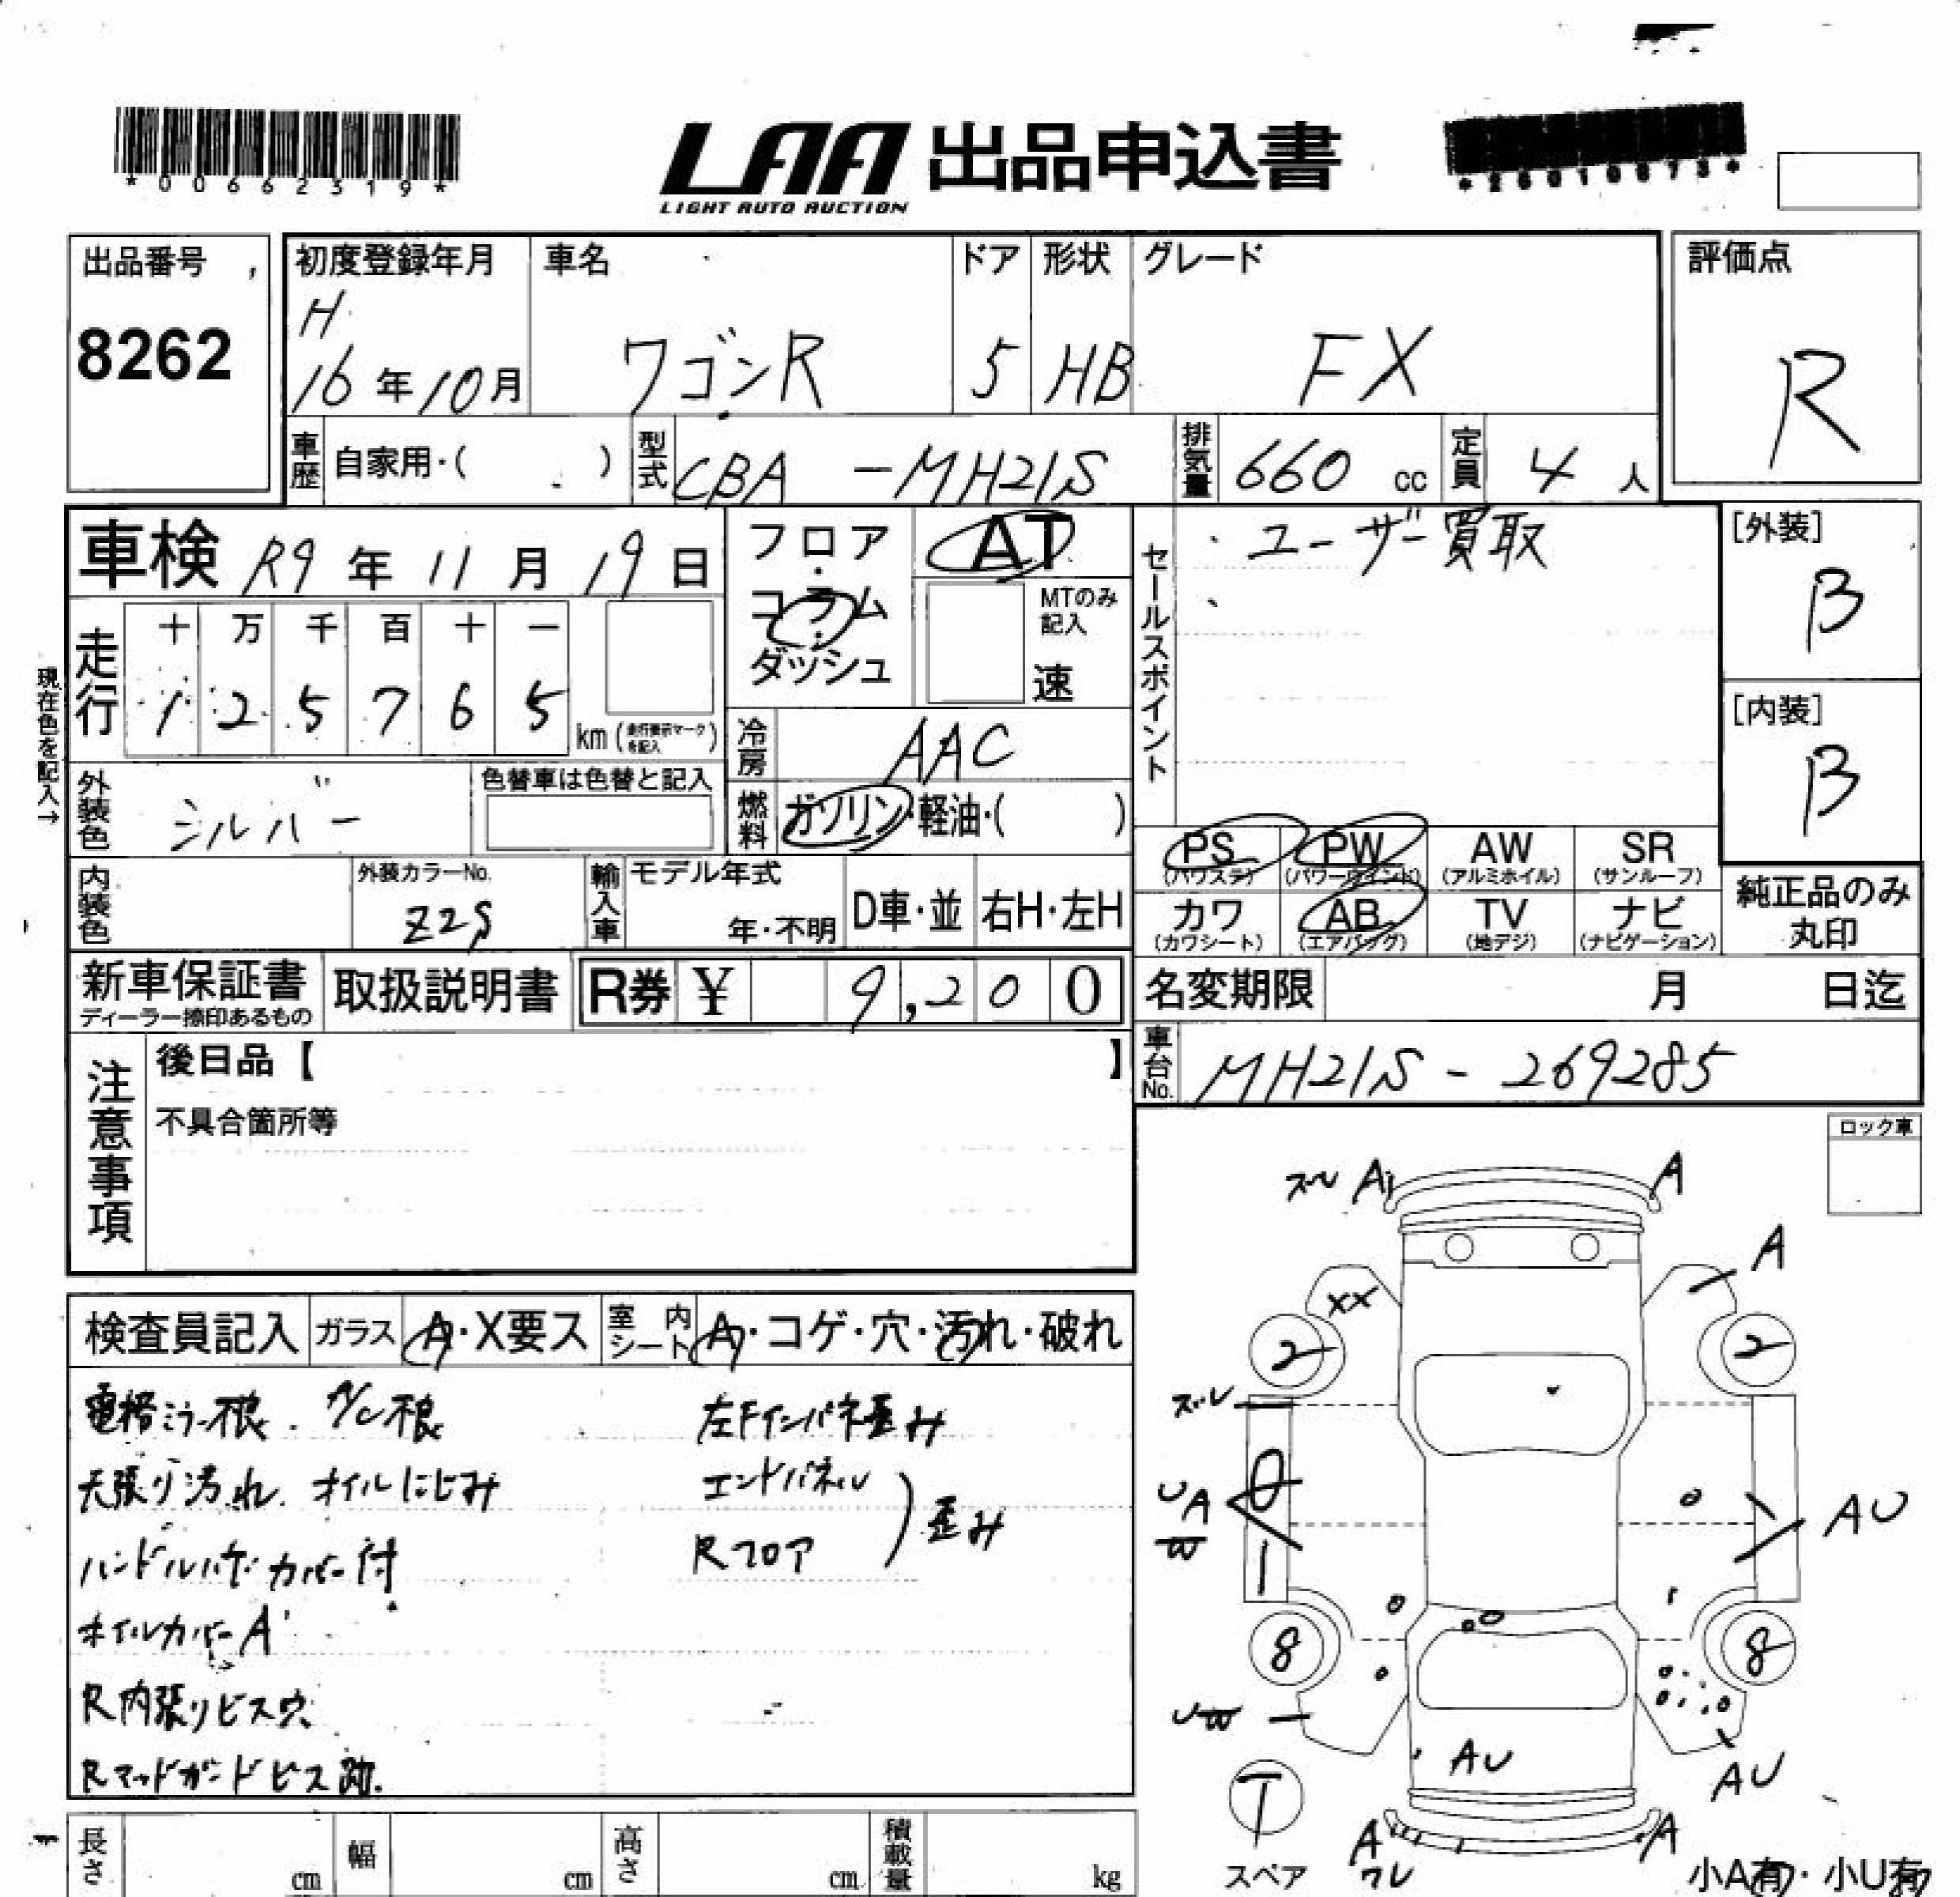 *00662319*
LAA 出品申込書
LIGHT AUTO AUCTION
出品番号
8262
初度登録年月
H
16年10月
車名
ワゴンR
ドア
5
形状
HB
グレード
FX
評価点
R
車歴
自家用・( )
型式
CBA -MH21S
排気量
660 cc
定員
4 人
車検 R9年11月19日
走行
十 万 千 百 十 一
1 2 5 7 6 5
km (走行表示マークを記入)
現在色を記入→
外装色
シルバー
色替車は色替と記入
内装色
外装カラーNo.
Z2S
フロア・コラム・ダッシュ
AT
MTのみ記入
速
冷房
AAC
燃料
ガソリン・軽油・( )
輸入車
モデル年式
年・不明
D車・並
右H・左H
セールスポイント
・ユーザー買取
[外装]
B
[内装]
B
PS (パワステ)
PW (パワーウインド)
AW (アルミホイル)
SR (サンルーフ)
カワ (カワシート)
AB (エアバッグ)
TV (地デジ)
ナビ (ナビゲーション)
純正品のみ丸印
新車保証書
ディーラー捺印あるもの
取扱説明書
R券 ¥ 9,200
名変期限 月 日迄
車台No.
MH21S - 269285
注意事項
後日品【 】
不具合箇所等
ロック車
検査員記入
ガラス
A・X要ス
室内シート
A・コゲ・穴・汚れ・破れ
電格ミラー不良. A/C不良
天張り汚れ. オイルにじみ
ハンドルハゲ・カバー付
ホイルカバーA
R内張りビス穴
Rマッドガードビス跡.
左Fインパネ歪み
エンドパネル
Rフロア
歪み
ズレ A
A
A
XX
2
2
ズレ
UA
W
AU
8
8
UW
AU
AU
T
スペア
A
ワレ
A
小A有・小U有
長さ cm
幅 cm
高さ cm
積載量 kg